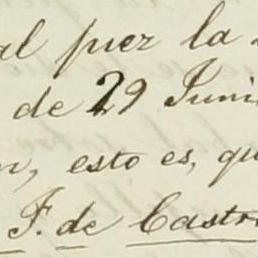 al juez la
de 29 Juni
n, esto es, qu
F. de Castr